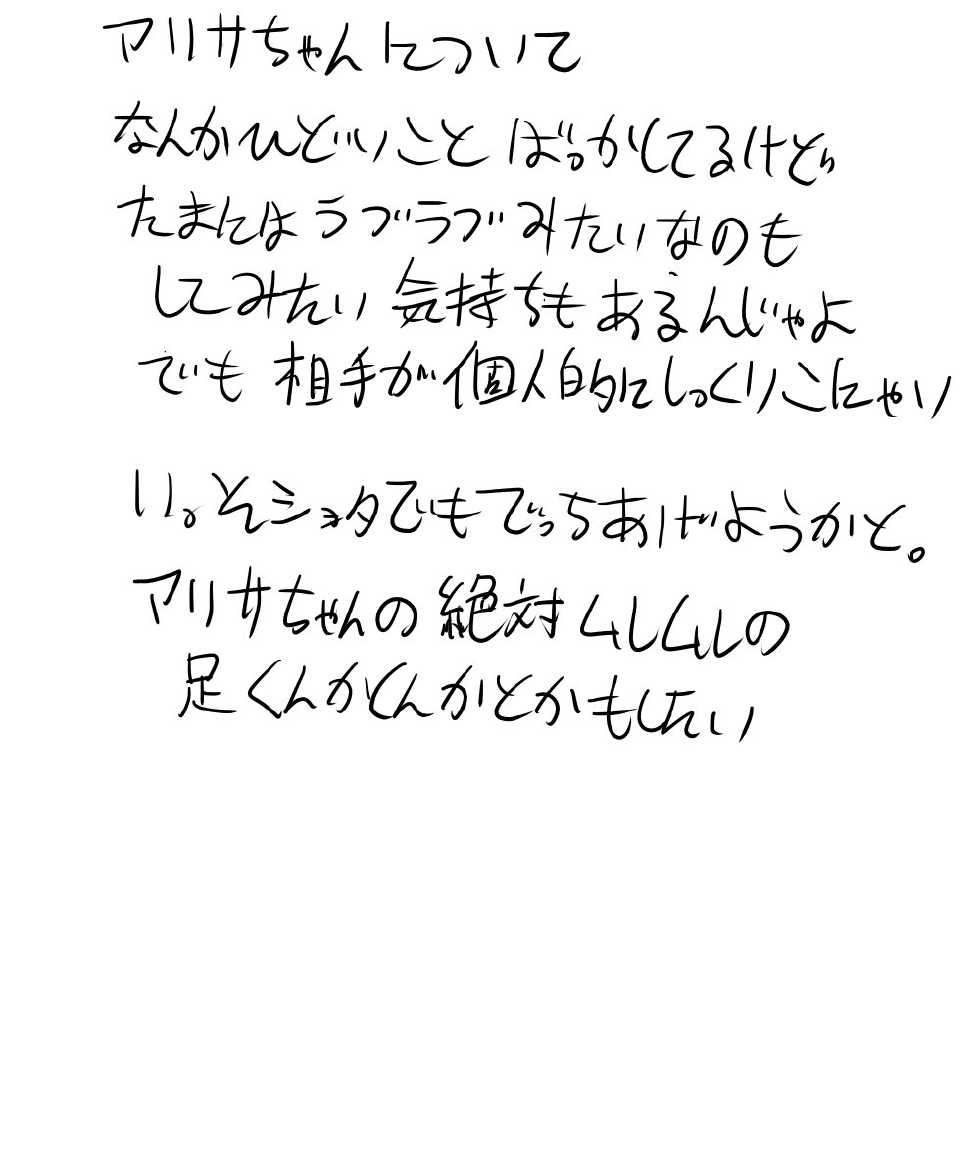 アリサちゃんについて
なんかひどいことばっかしてるけど
たまにはラブラブみたいなのも
してみたい気持ちもあるんじゃよ
でも相手が個人的にしっくりこにゃい
いっそショタでもでっちあげようかと。
アリサちゃんの絶対ムレムレの
足くんかくんかとかもしたい